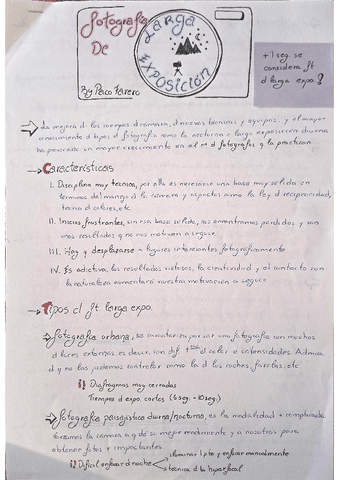 fotografía
De
LARGA
EXPOSICIÓN
By Paco Farero
+1 seg se
considera ft
d larga expo.?
La mejora d los cuerpos d cámara, d nuevas técnicas y equipos, y el mayor
conocimiento d tipos d fotografía como la nocturna o larga exposición diurna
ha provocado un mayor crecimiento en el nº d fotografos q la practican.
Características
I. Disciplina muy técnica, por ello es necesario una base muy solida en
terminos del manejo d la cámara y aspectos como la ley d reciprocidad,
teoria d colores, etc
II. Inicios frustrantes, sin esa base solida, nos encontramos perdidos y con
unos resultados q no nos motivan a seguir.
III. Hay q desplazarse a lugares interesantes fotográficamente
IV. Es adictiva, los resultados vistosos, la creatividad y el contacto con
la naturaleza aumentará nuestra motivación a seguir.
Tipos d ft. larga expo.
fotografía urbana, se caracteriza por ser una fotografía con muchos
d luces externas es decir, con dif d color e intensidades. Además
d q no las podemos controlar como la d los coches, farolas, etc
Diafragmas muy cerrados
Tiempos d expo. cortos (6seg - 10seg.)
fotografía paisajística diurna/nocturna, es la modalidad + complicada.
Forzamos la cámara a q de su mejor rendimiento y a nosotros para
obtener fotos + impactantes.
Dificil enfocar d noche
iluminar 1 pto y enfocar manualmente
técnica d la hiperfocal